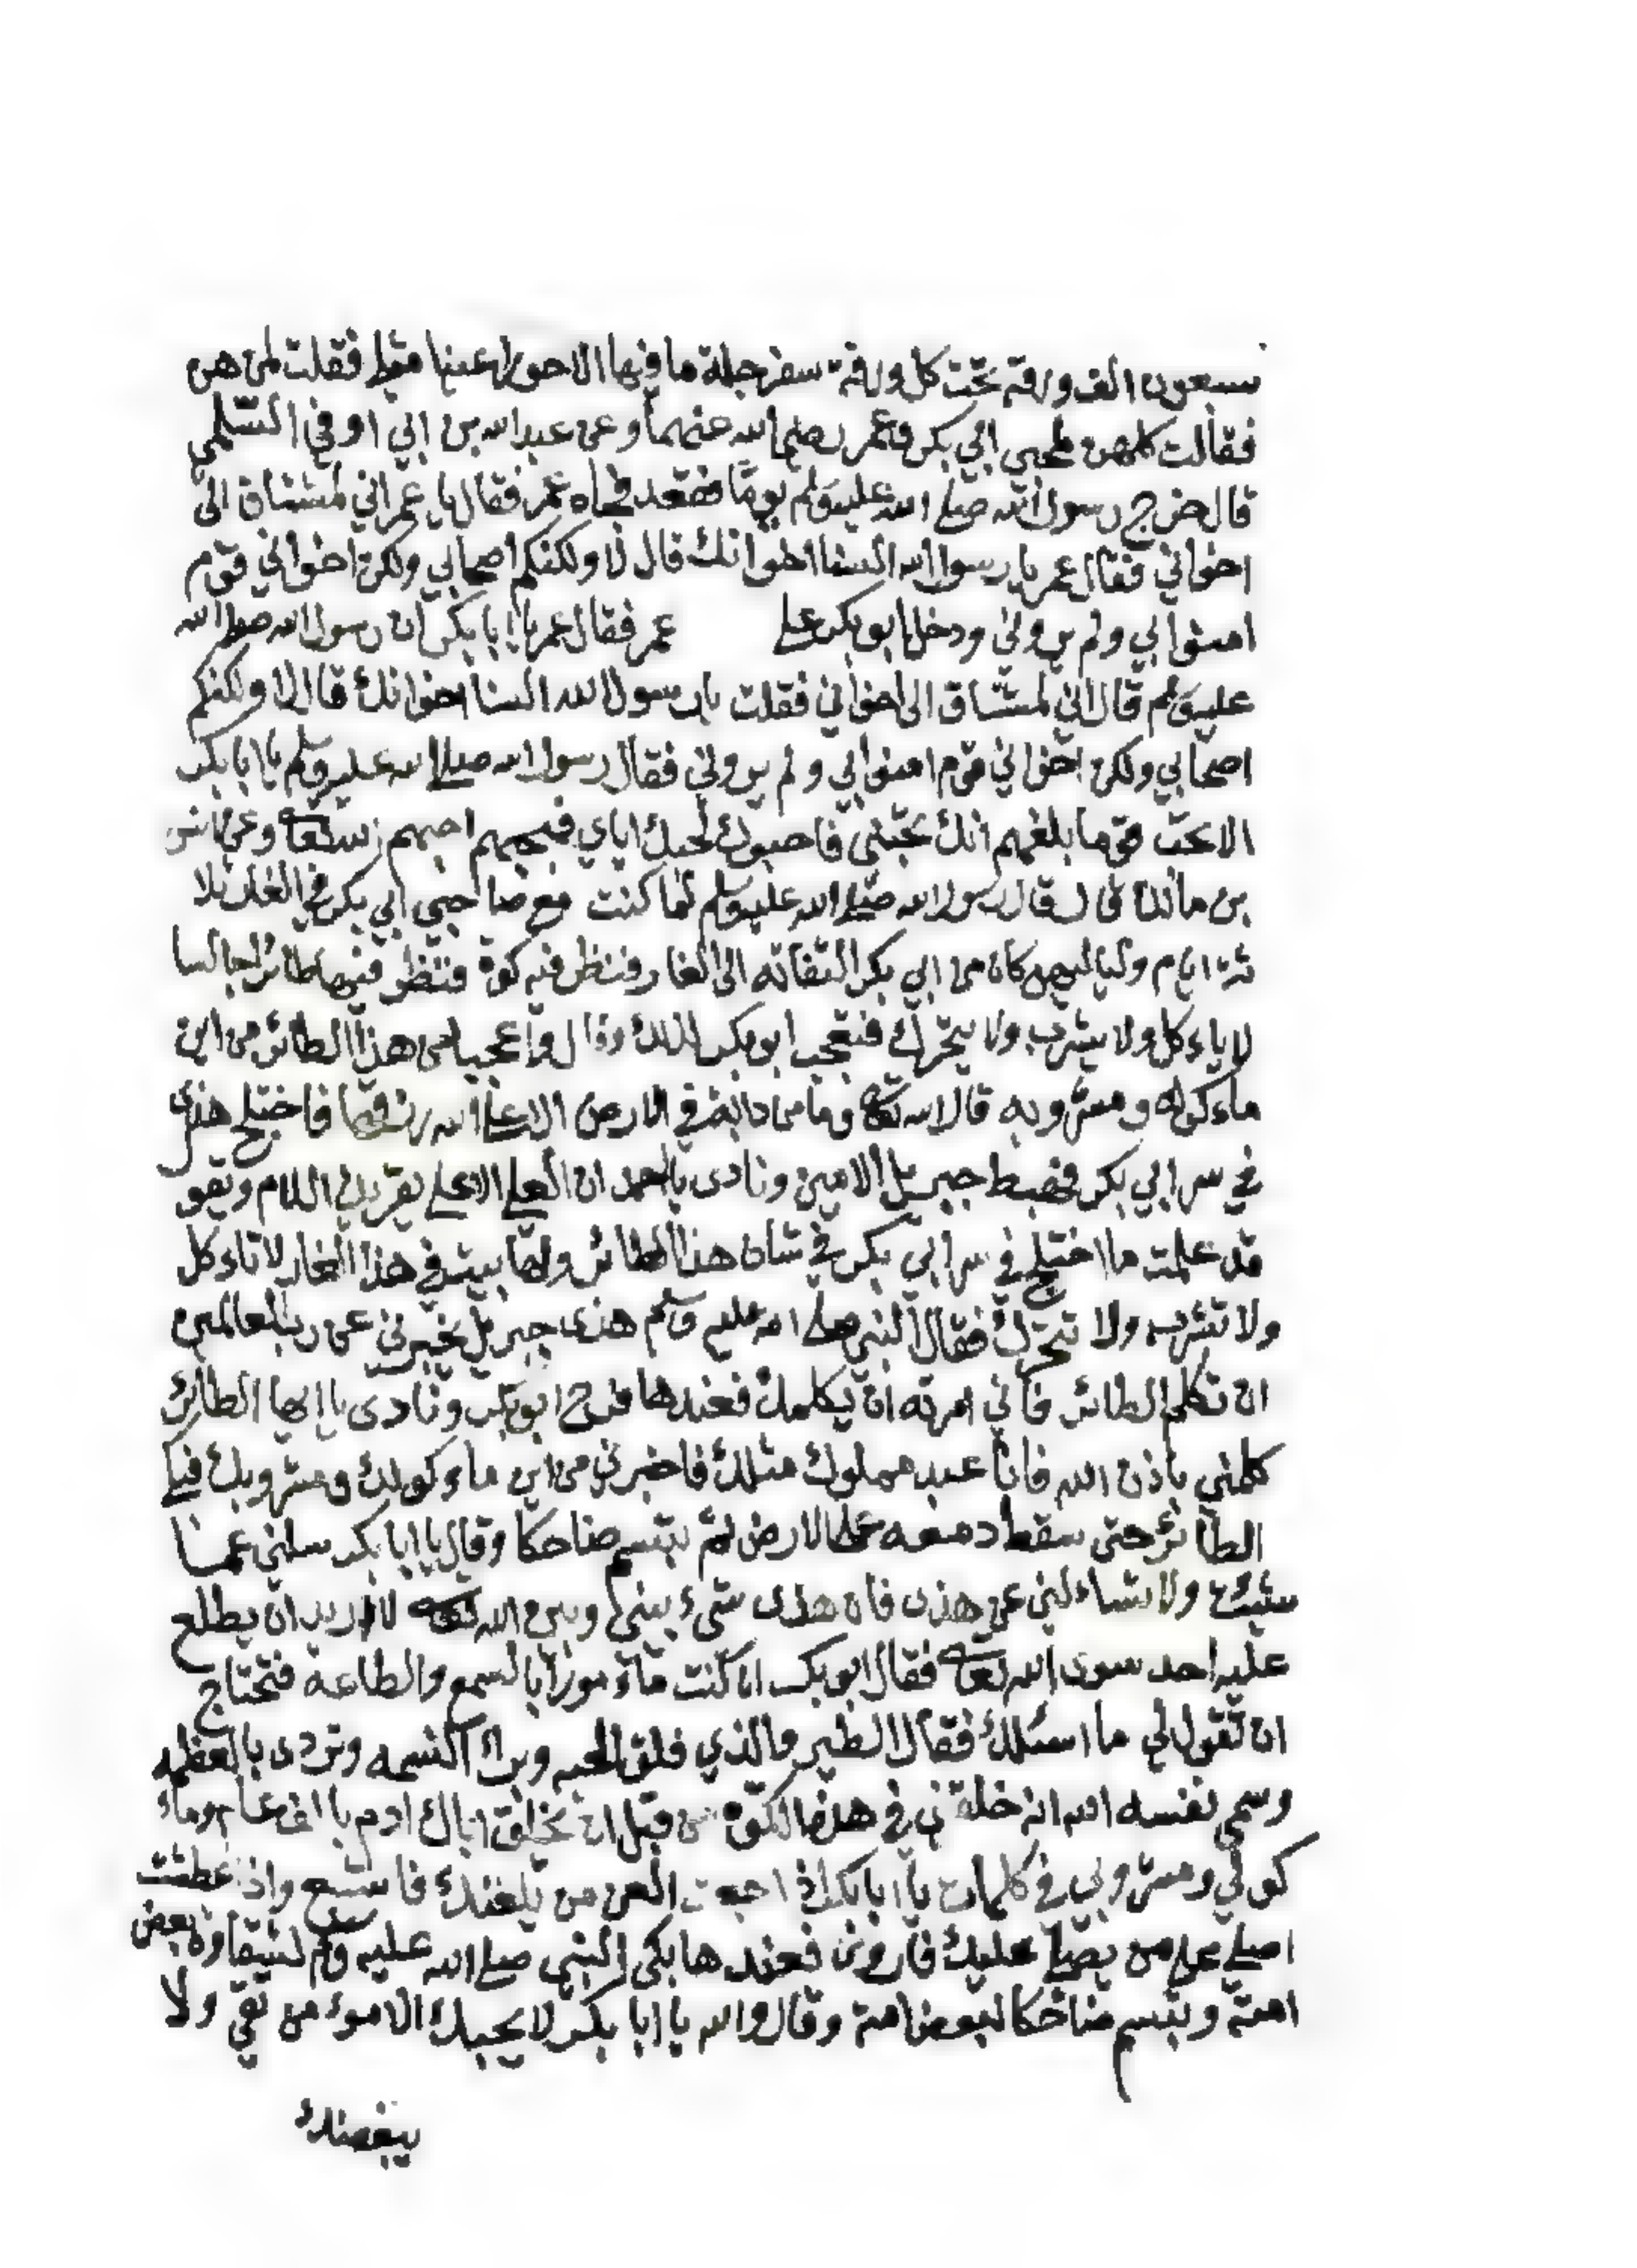 سبعون الف ورقة تحت كل ورقة سفرجلة ما فيها الا حورا عينا فقلت لمن هن
فقالت كلهن لمحبي ابي بكر وعمر رضي الله عنهما وعن عبد الله بن ابي اوفي السلمي
قال خرج رسول الله صلى الله عليه وسلم يوما فقعد فجاه عمر فقال يا عمر اني لمشتاق الى
اخواني فقال عمر يا رسول الله السنا اخوانك قال لا ولكنكم اصحابي ولكن اخواني قوم
امنوا بي ولم يروني ودخل ابو بكر على عمر فقال عمر يا ابا بكر ان رسول الله صلى الله
عليه وسلم قال اني لمشتاق الى اخواني فقلت يا رسول الله السنا اخوانك قال لا ولكنكم
اصحابي ولكن اخواني قوم امنوا بي ولم يروني فقال رسول الله صلى الله عليه وسلم يا ابا بكر
الا تحب قوما بلغهم انك تحبني فاحبوك لحبك اياي فتحبهم احبهم الله تعا وعن انس
بن مالك قال قال رسول الله صلى الله عليه وسلم لما كنت مع صاحبي ابي بكر في الغار ثلا
ثة ايام ولياليهن كان من ابي بكر التفاتة الى الغار فنظر فيه كوة فنظر فيها طائرا جالسا
لا ياءكل ولا يشرب ولا يتحرك فتعجب ابو بكر لذلك وقال واعجبا من هذا الطائر من اين
ماءكوله ومشروبه قال الله تعا وما من دابة في الارض الا على الله رزقها فاختلج هذى
في سر ابي بكر فهبط جبريل الامين ونادى يا احمد ان العلي الاعلى يقريك السلام ويقو
قد علمت ما اختلج في سر ابي بكر في شان هذا الطائر ولها بيت في هذا الغار لا تاءكل
ولا تشرب ولا تتحرك فقال النبي صلى الله عليه وسلم هذى جبريل يخبرني عن رب العالمين
ان تكلم الطائر فاني امرته ان يكلمك فعندها فرح ابو بكر ونادى يا ايها الطائر
كلمني باذن الله فانا عبد مملوك مثلك فاخبرني من اين ماءكولك ومشروبك فبكى
الطائر حتى سقط دمعه على الارض ثم تبسم ضاحكا وقال يا ابا بكر سلني عما
شئت ولا تساءلني عن هذى فان هذى شيء بيني وبين الله تعا لا اريد ان يطلع
عليه احد سوى الله تعا فقال ابو بكر انا كنت ماءمورا بالسمع والطاعة فتحتاج
ان تقول لي ما اسئلك فقال الطير والذي فلق الحبه وبرا النسمه وتردى بالعظمه
وسمى نفسه الله انه خلقني في هذه الكوة من قبل ان يخلق اباك ادم با الف عام وماء
كولي ومشروبي في كلمات يا ابا بكر اذا جعت العن من يلعنك فاشبع واذا عطشت
اصلي على من يصلي عليك فاروى فعندها بكى النبي صلى الله عليه وسلم لشقاوة بعض
امته وتبسم ضاحكا لبعض امته وقال والله يا ابا بكر لا يحبك الا موءمن تقي ولا
يبغضك